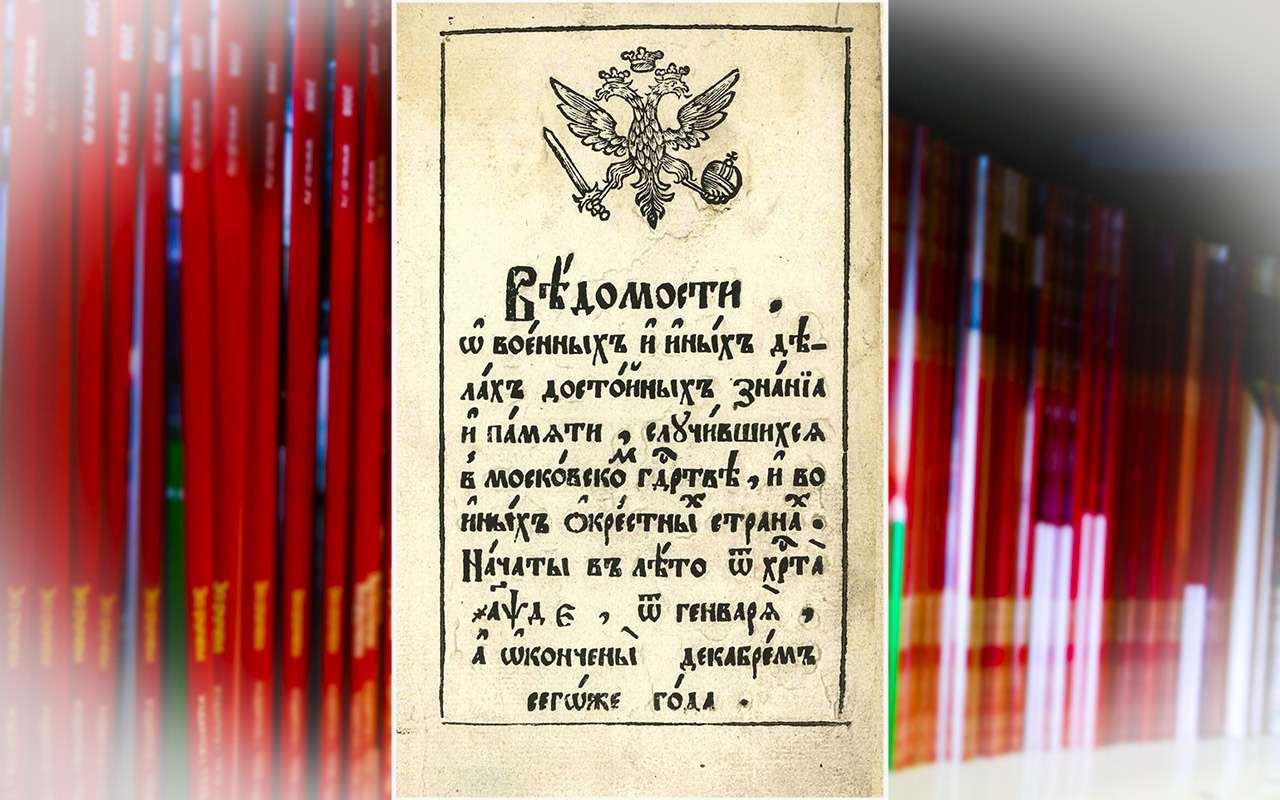 Вѣ́домости ,
ѡ҆ вое́нныхъ и҆ и҆ны́хъ дѣ-
ла́хъ досто́йныхъ зна́нїꙗ
и҆ па́мѧти , слꙋчи́вшихсѧ
в моско́вскоⷨ гдⷭ҇ртвѣ , и҆ во
и҆ны́хъ ѻ҆кре́стныⷯ странаⷯ .
На́чаты въ лѣ́то ѿ хрⷭ҇та̀
҂аѱд є , ѿ генварѧ̀ ,
а҆ ѡ҆кончены̀ декабре́мъ
сегѡ́же го́да .